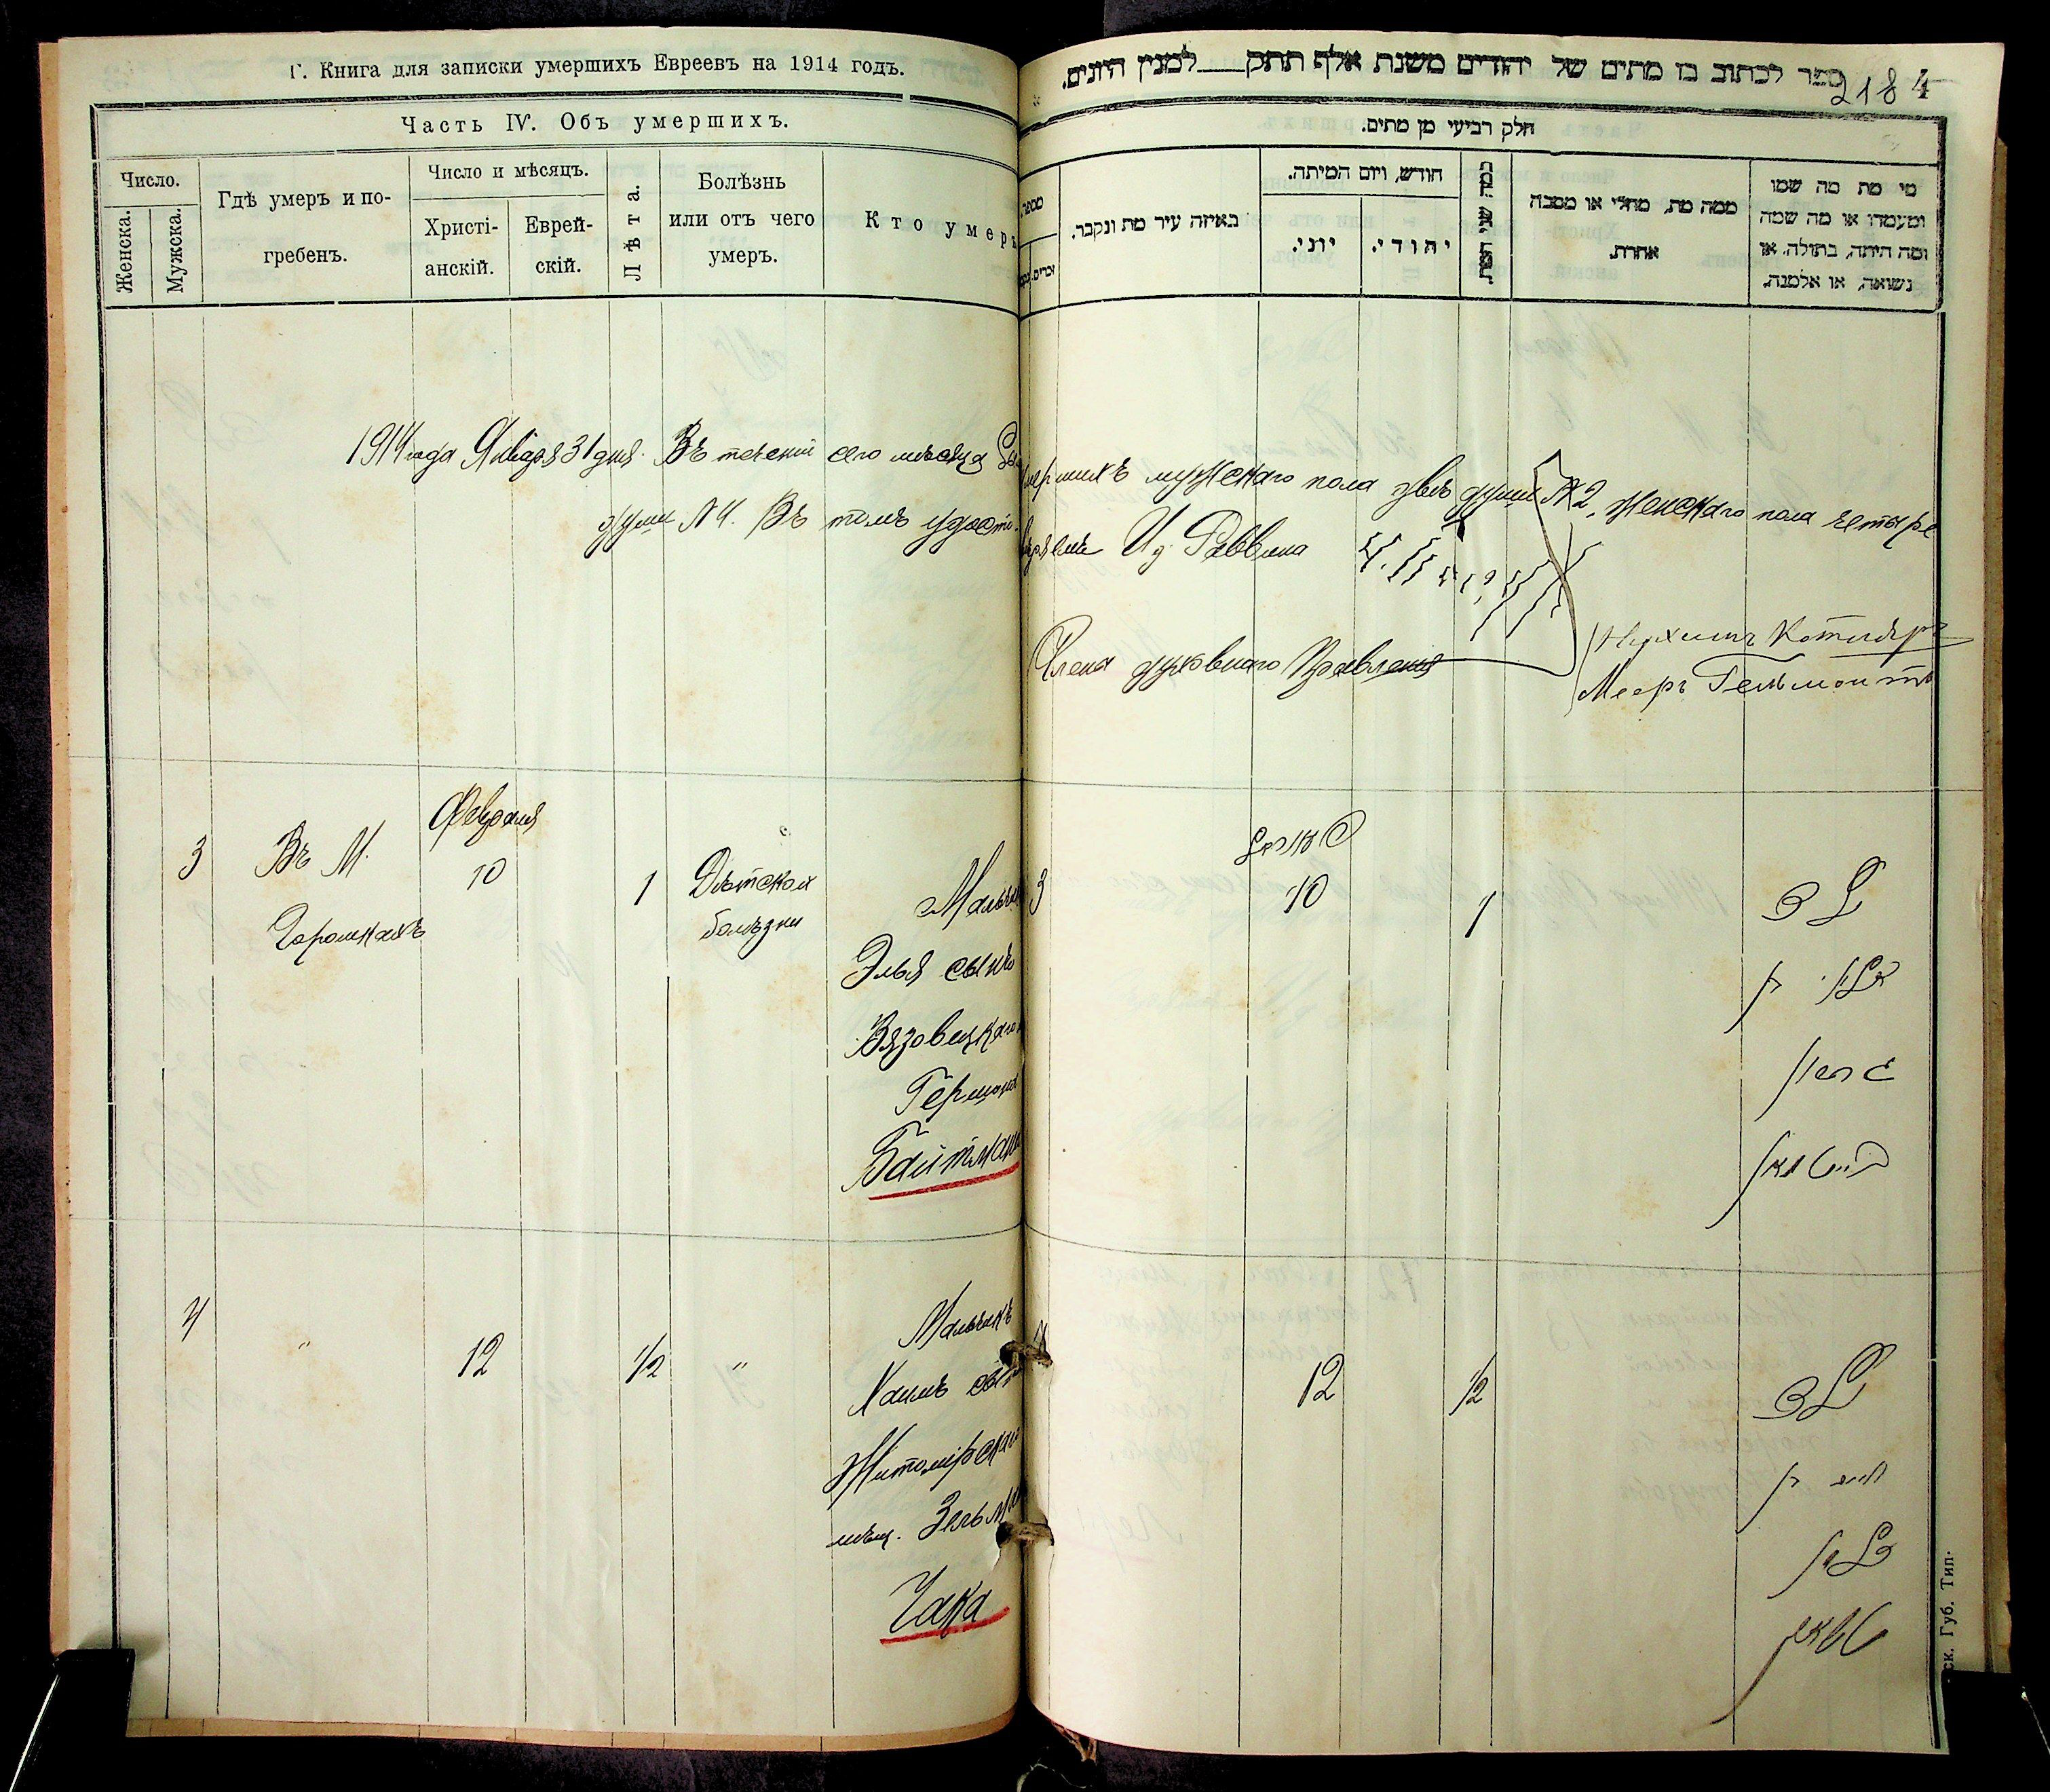 Г. Книга для записки умершихъ Евреевъ на 1914 годъ.
Часть IV. Объ умершихъ.
Число.
Женска.
Мужска.
Гдѣ умеръ и по-
гребенъ.
Число и мѣсяцъ.
Христі-
анскій.
Еврей-
скій.
Лѣта.
Болѣзнь
или отъ чего
умеръ.
Кто умеръ
ספר לכתוב בו מתים של יהודים משנת אלף תתק למנין היונים.
2184
חלק רביעי מן מתים.
מספר
באיזה עיר מת ונקבר.
חודש, ויום המיתה.
יוני.
יהודי.
כמה שני חייו
ממה מת, מחלי או מסבה
אחרת.
מי מת מה שמו
ומעמדו או מה שמה
ומה היתה, בתולה, או
נשואה, או אלמנה.
1914 года Января 31 дня. Въ теченіи сего мѣсяца
умершихъ мужскаго пола двѣ души № 2, женскаго пола четыре
души № 4. Въ томъ удосто-
вѣряемъ И д. Раввина
Члена духовнаго Правленія
Нухимъ Котляръ
Мееръ Гельмонтъ
3
Въ М.
Февраля
10
1
Дѣтской
болѣзни
Мальчик
Элья сынъ
Вязовецкаго
Гершона
Байтмана
3
10
1
4
"
12
1/2
"
Мальчикъ
Хаимъ сын
Житомірскаго
мѣщ. Зельм
Чака
4
12
1/2
ск. Губ. Тип.